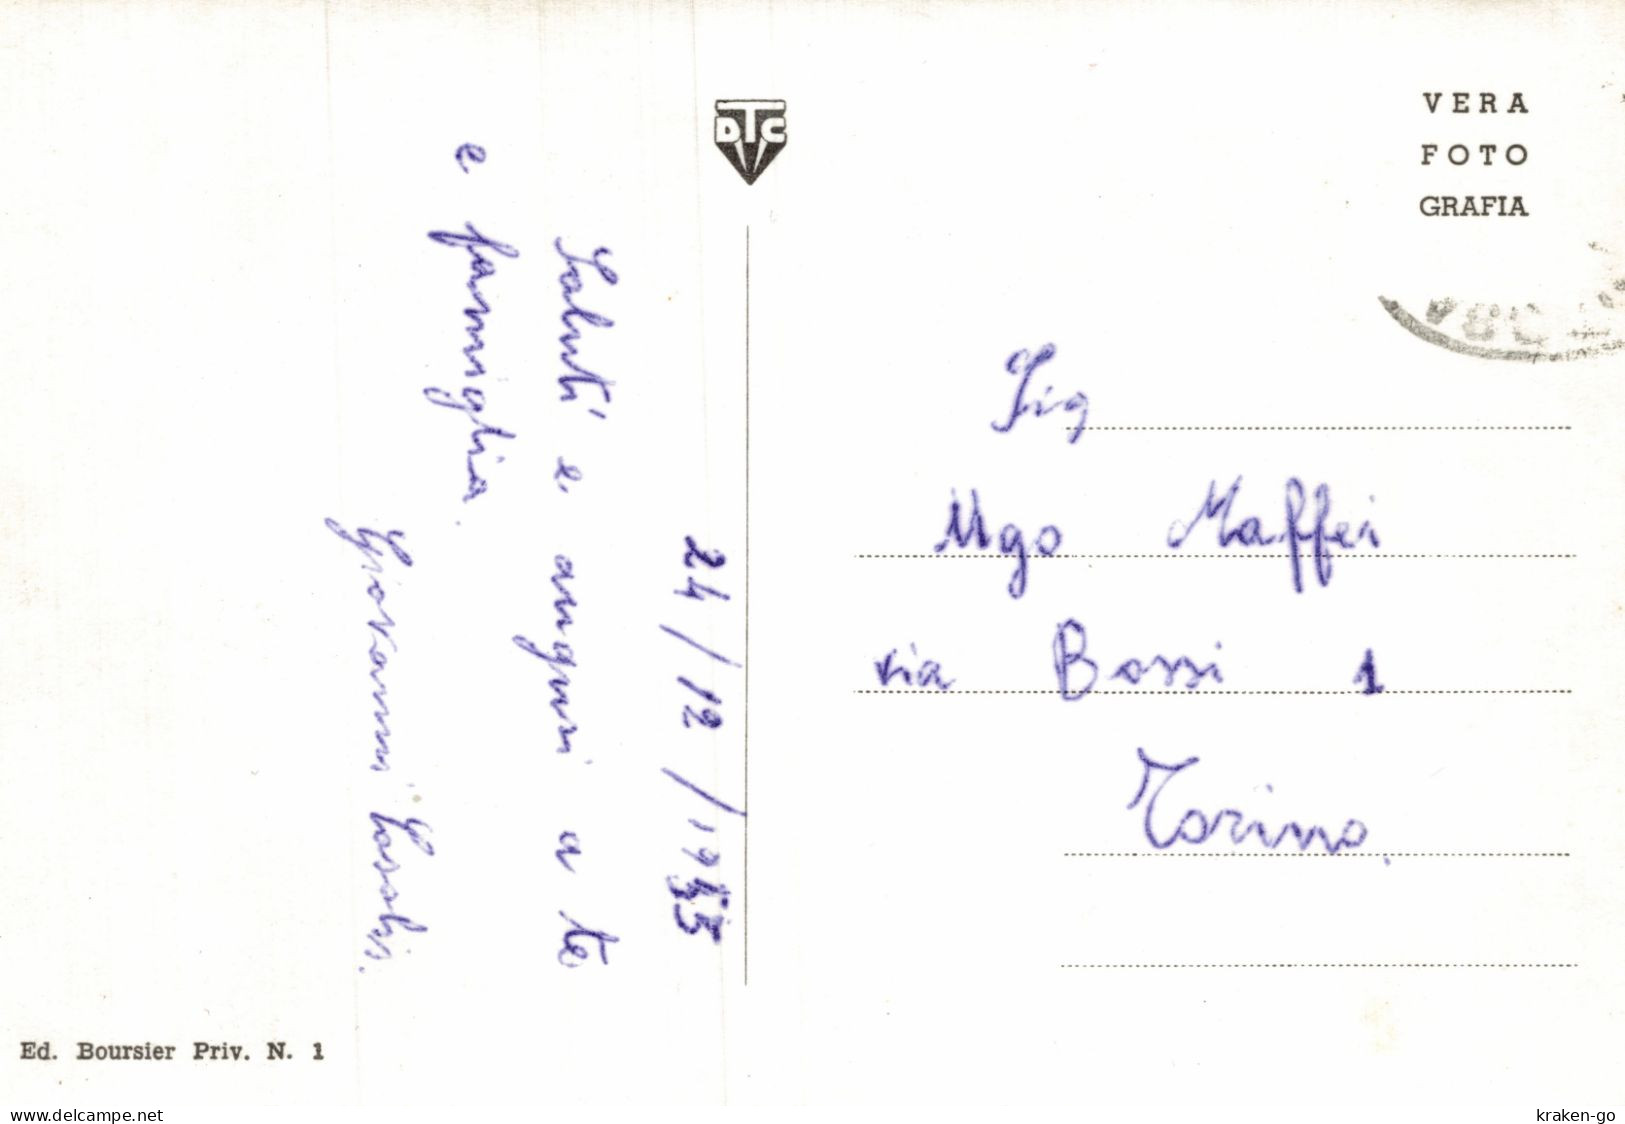 24/12/1955
Saluti e auguri a te
e famiglia.
Giovanni
DTC
VERA
FOTO
GRAFIA
Sig
Ugo Maffei
via Bossi 1
Torino.
Ed. Boursier Priv. N. 1
www.delcampe.net
kraken-go